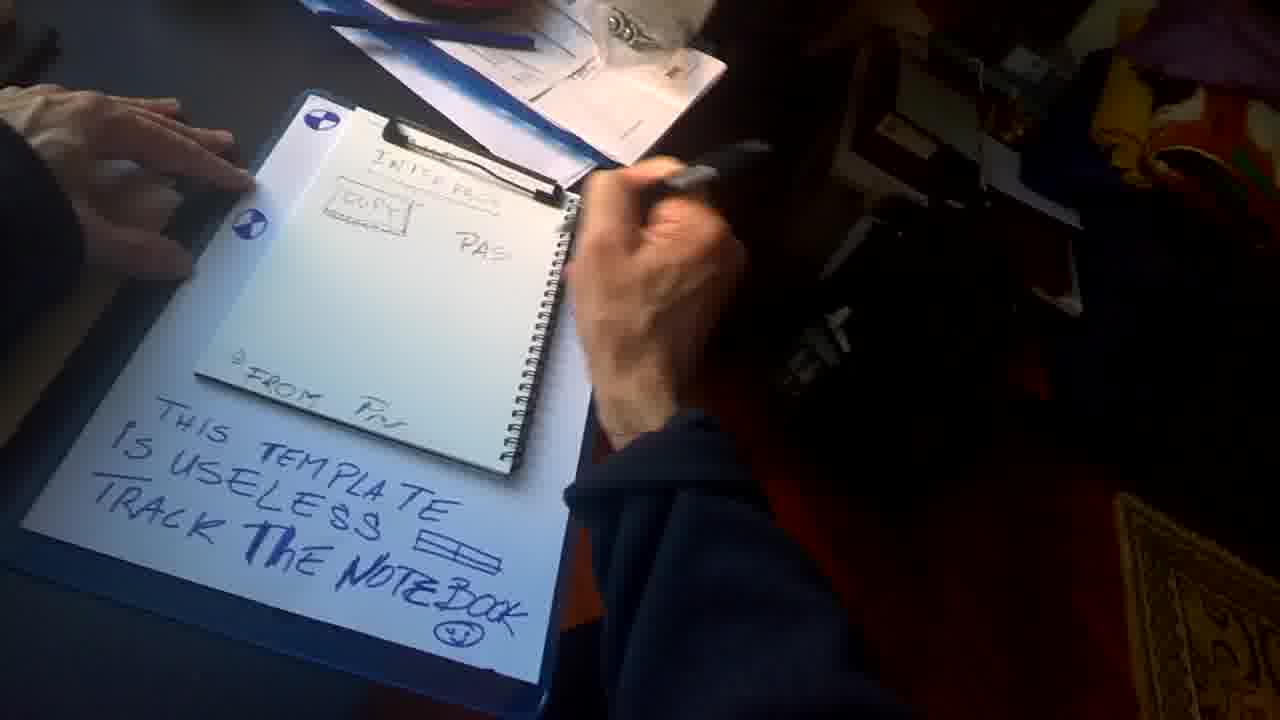 INTERFACE
COPY
PAS
FROM
THIS TEMPLATE
IS USELESS
TRACK THE NOTEBOOK